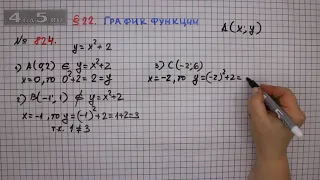 §22. ГРАФИК ФУНКЦИИ
№ 824.
y = x² + 2
A(x; y)
1) A(0;2) ∈ y = x² + 2
x = 0, то 0² + 2 = 2 = y
2) B(-1; 1) ∉ y = x² + 2
x = -1, то y = (-1)² + 2 = 1 + 2 = 3
т.к. 1 ≠ 3
3) C(-2; 6)
x = -2, то y = (-2)² + 2 =